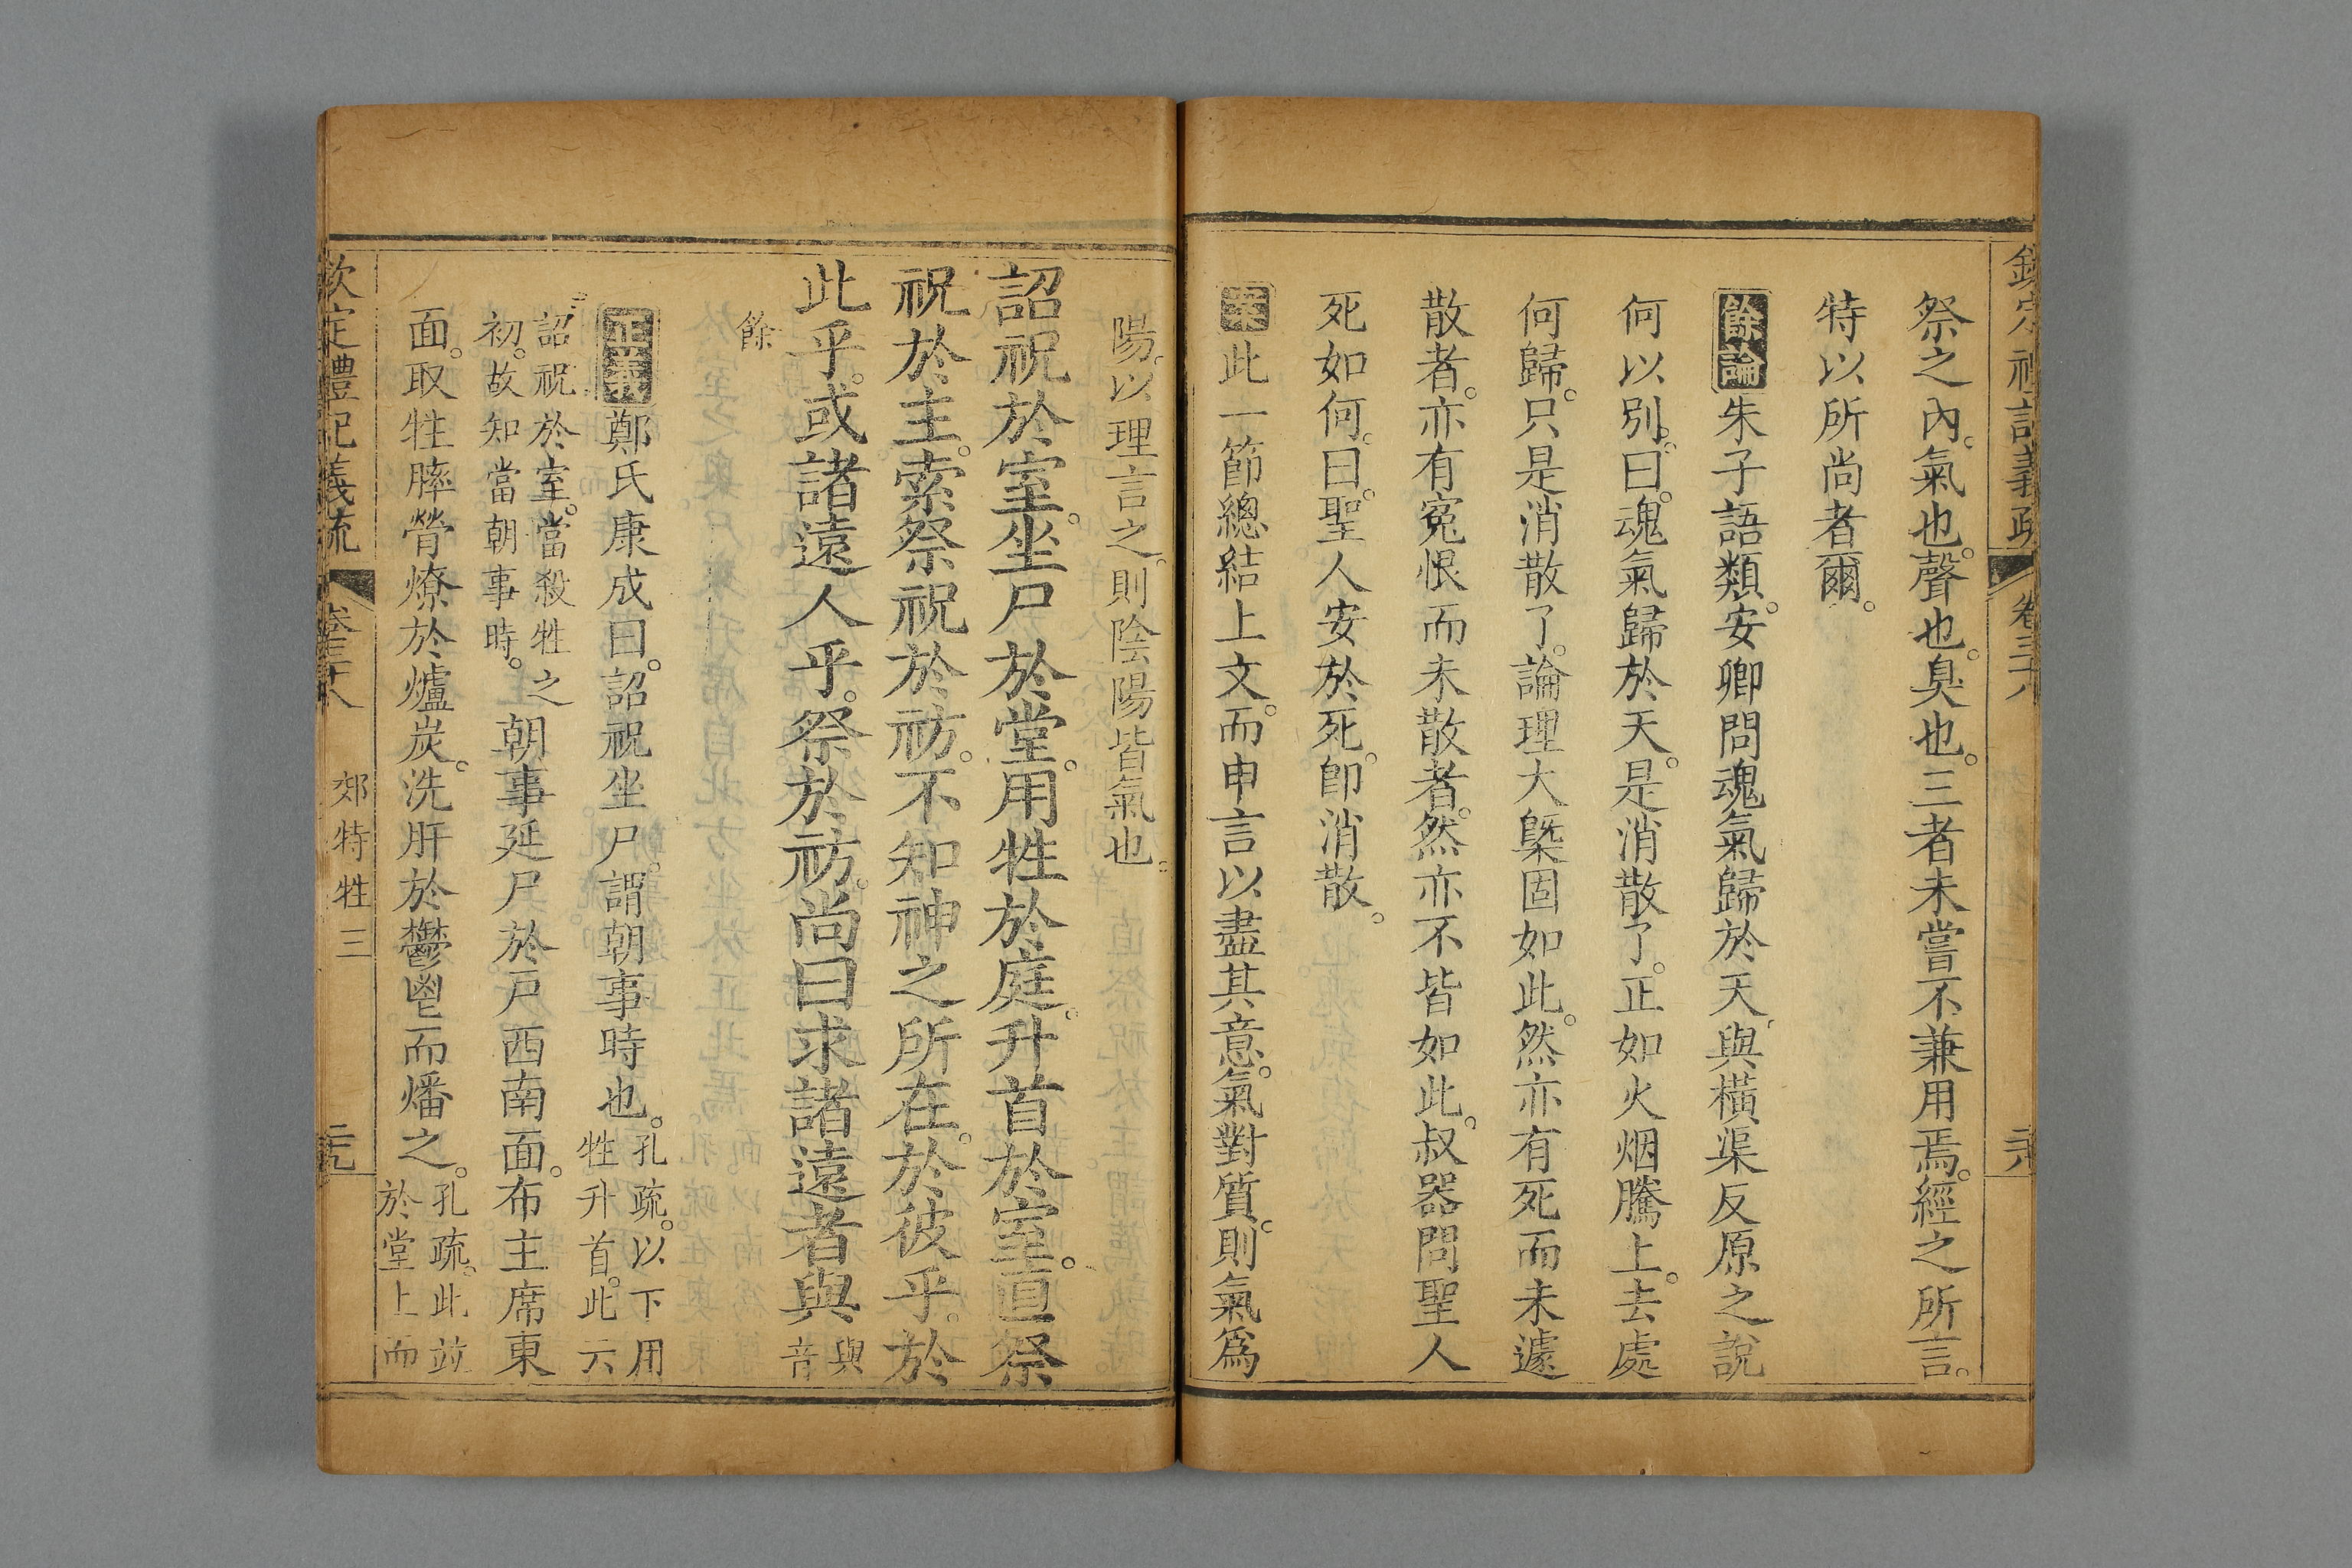 欽定禮記義疏 卷三十六 郊特牲三
祭之內。氣也。聲也。臭也。三者未嘗不兼用焉。經之所言。
特以所尚者爾。
餘論朱子語類。安卿問魂氣歸於天、與橫渠反原之說
何以別。曰。魂氣歸於天。是消散了。正如火烟騰上。去處
何歸。只是消散了。論理大槩固如此。然亦有死而未遽
散者。亦有冤恨而未散者。然亦不皆如此。叔器問聖人
死如何。曰。聖人安於死。卽消散。
案此一節總結上文。而申言以盡其意。氣對質。則氣爲
陽。以理言之。則陰陽皆氣也。
詔祝於室。坐尸於堂。用牲於庭。升首於室。直祭
祝於主。索祭祝於祊。不知神之所在。於彼乎。於
此乎。或諸遠人乎。祭於祊。尚曰求諸遠者與與音
餘
正義鄭氏康成曰。詔祝坐尸。謂朝事時也。孔疏。以下用牲升首。此云
詔祝於室。當殺牲之初。故知當朝事時。朝事延尸於戸西南面。布主席東
面。取牲膟膋燎於爐炭。洗肝於鬱鬯而燔之。孔疏。此竝於堂上而
欽定禮記義疏 卷三十六 郊特牲三 元